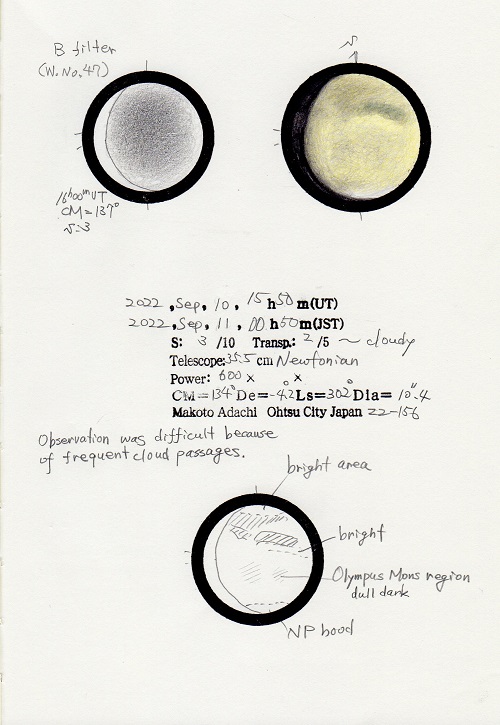 B filter
(W.No.47)
16h00m UT
CM=137°
2022, Sep, 10, 15h50m(UT)
2022, Sep, 11, 00h50m(JST)
S: 3/10 Transp.: 2/5 ~ cloudy
Telescope: 35.5cm Newtonian
Power: 600× ×
CM=134° De=-4.2° Ls=302° Dia=10".4
Makoto Adachi Ohtsu City Japan 22-156
Observation was difficult because
of frequent cloud passages.
bright area
bright
Olympus Mons region
dull dark
NP hood